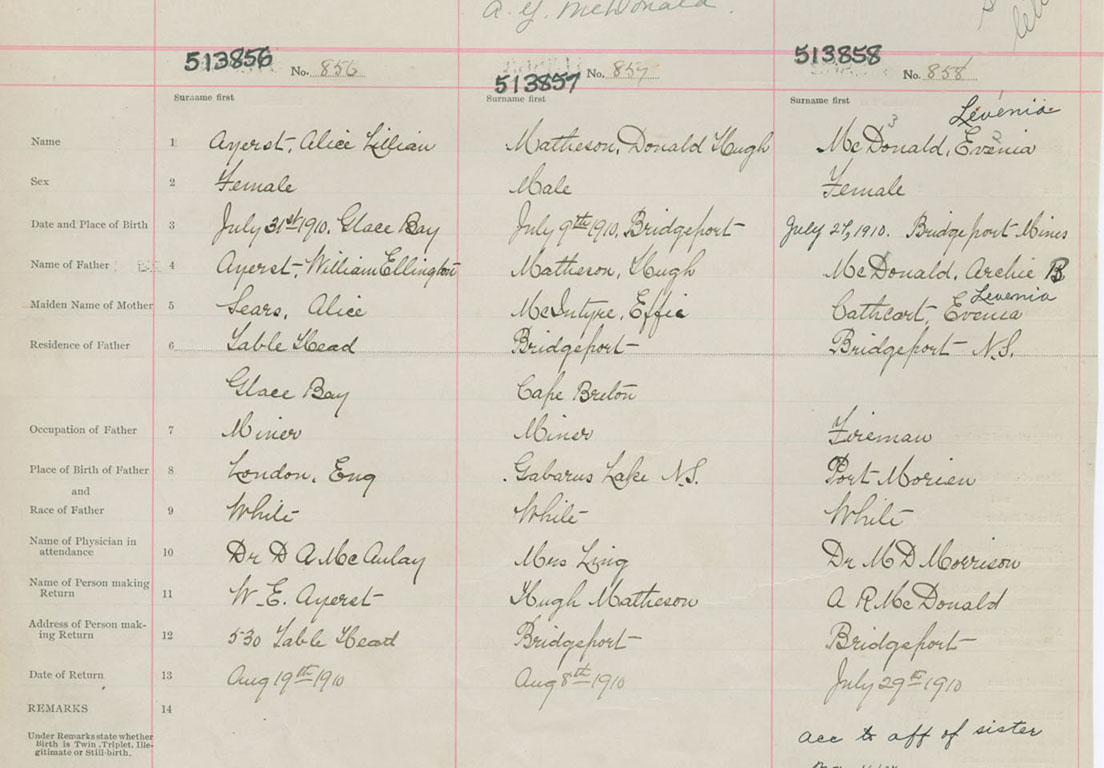 A. Y. McDonald.
513856 No. 856 513857 No. 857 513858 No. 858
Surname first Surname first Surname first
Levenia
Name 1 Ayerst, Alice Lillian Matheson, Donald Hugh McDonald, Evenia
Sex 2 Female Male Female
Date and Place of Birth 3 July 31st 1910. Glace Bay July 9th 1910. Bridgeport July 27, 1910. Bridgeport Mines
Name of Father 4 Ayerst, William Ellington Matheson, Hugh McDonald, Archie B
Levenia
Maiden Name of Mother 5 Sears, Alice McIntyre, Effie Cathcart, Evenia
Residence of Father 6 Table Head Bridgeport Bridgeport N.S.
Glace Bay Cape Breton
Occupation of Father 7 Miner Miner Fireman
Place of Birth of Father 8 London, Eng Gabarus Lake N.S. Port Morien
and
Race of Father 9 White White White
Name of Physician in
attendance 10 Dr D A McAulay Mrs Ling Dr M D Morrison
Name of Person making
Return 11 W. E. Ayerst Hugh Matheson A R McDonald
Address of Person mak-
ing Return 12 530 Table Head Bridgeport Bridgeport
Date of Return 13 Aug 19th 1910 Aug 8th 1910 July 29th 1910
REMARKS 14
Under Remarks state whether
Birth is Twin, Triplet, Ille-
gitimate or Still-birth.
acc to aff of sister